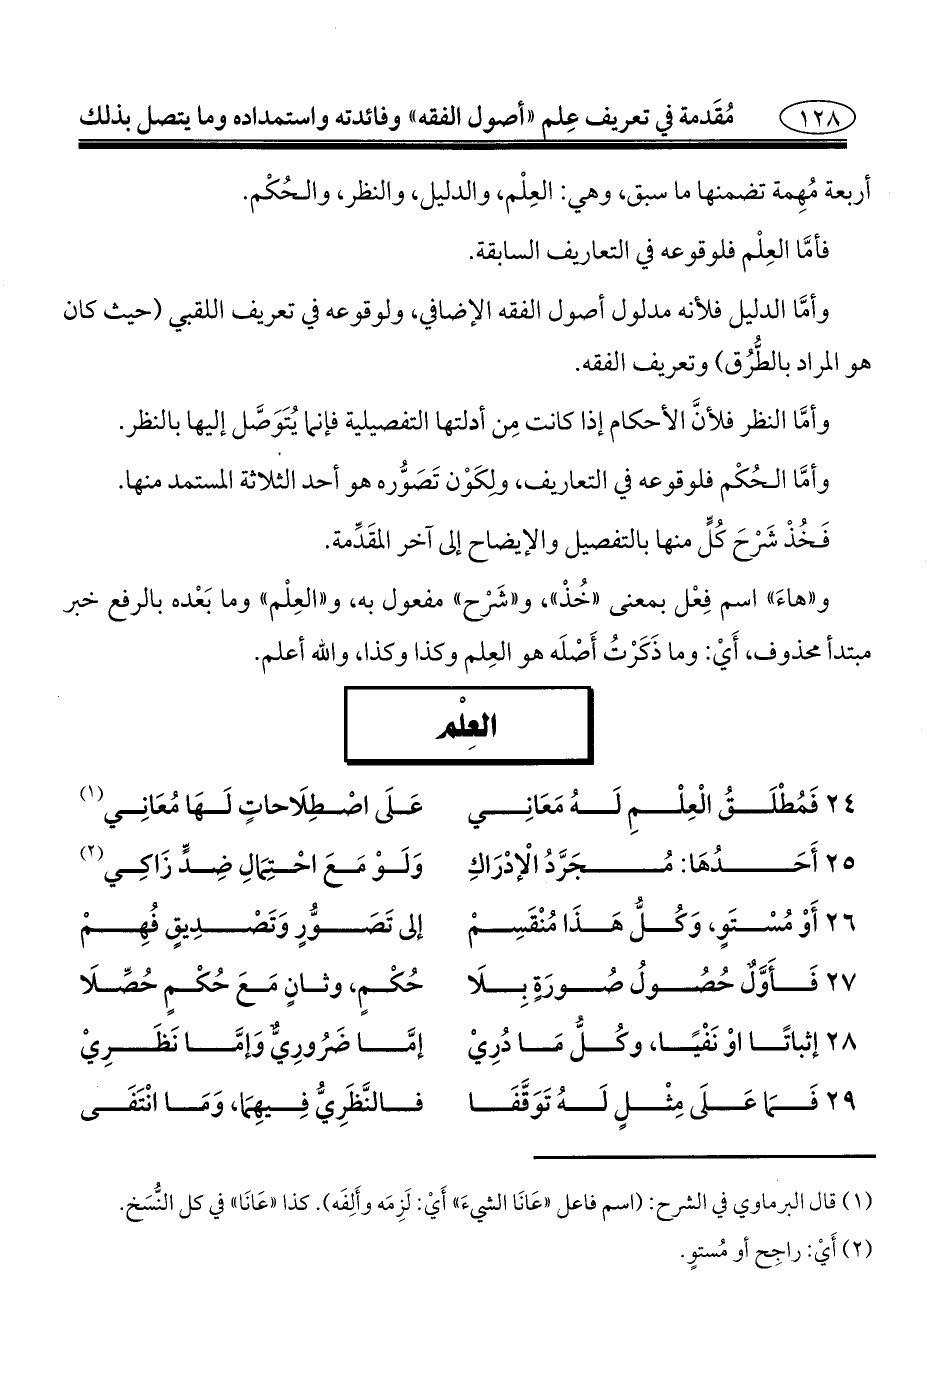 ١٢٨ مُقَدمة في تعريف عِلم «أصول الفقه» وفائدته واستمداده وما يتصل بذلك
أربعة مُهِمة تضمنها ما سبق، وهي: العِلْم، والدليل، والنظر، والحُكْم.
فأمَّا العِلْم فلوقوعه في التعاريف السابقة.
وأمَّا الدليل فلأنه مدلول أصول الفقه الإضافي، ولوقوعه في تعريف اللقبي (حيث كان
هو المراد بالطُّرُق) وتعريف الفقه.
وأمَّا النظر فلأنَّ الأحكام إذا كانت مِن أدلتها التفصيلية فإنما يُتَوَصَّل إليها بالنظر.
وأمَّا الحُكْم فلوقوعه في التعاريف، ولِكَوْن تَصَوُّره هو أحد الثلاثة المستمد منها.
فَخُذْ شَرْحَ كُلٍّ منها بالتفصيل والإيضاح إلى آخر المقَدِّمة.
و«هاءَ» اسم فِعْل بمعنى «خُذْ»، و«شَرْح» مفعول به، و«العِلْم» وما بَعْده بالرفع خبر
مبتدأ محذوف، أَيْ: وما ذَكَرْتُ أَصْلَه هو العِلم وكذا وكذا، والله أعلم.
العِلْم
٢٤ فَمُطْلَقُ الْعِلْمِ لَهُ مَعَانِي عَلَى اصْطِلَاحَاتٍ لَهَا مُعَانِي(١)
٢٥ أَحَدُهَا: مُجَرَّدُ الْإِدْرَاكِ وَلَوْ مَعَ احْتِمَالِ ضِدٍّ زَاكِي(٢)
٢٦ أَوْ مُسْتَوٍ، وَكُلُّ هَذَا مُنْقَسِمْ إلى تَصَوُّرٍ وَتَصْدِيقٍ فُهِمْ
٢٧ فَأَوَّلٌ حُصُولُ صُورَةٍ بِلَا حُكْمٍ، وثَانٍ مَعَ حُكْمٍ حُصِّلَا
٢٨ إثباتًا اوْ نَفْيًا، وكُلُّ مَا دُرِيْ إمَّا ضَرُورِيٌّ وَإِمَّا نَظَرِيْ
٢٩ فَمَا عَلَى مِثْلٍ لَهُ تَوَقَّفَا فالنَّظَرِيُّ فِيهِمَا، وَمَا انْتَفَى
(١) قال البرماوي في الشرح: (اسم فاعل «عَانَا الشيءَ» أَيْ: لَزِمَه وأَلِفَه). كذا «عَانَا» في كل النُّسَخ.
(٢) أَيْ: راجِح أو مُستوٍ.